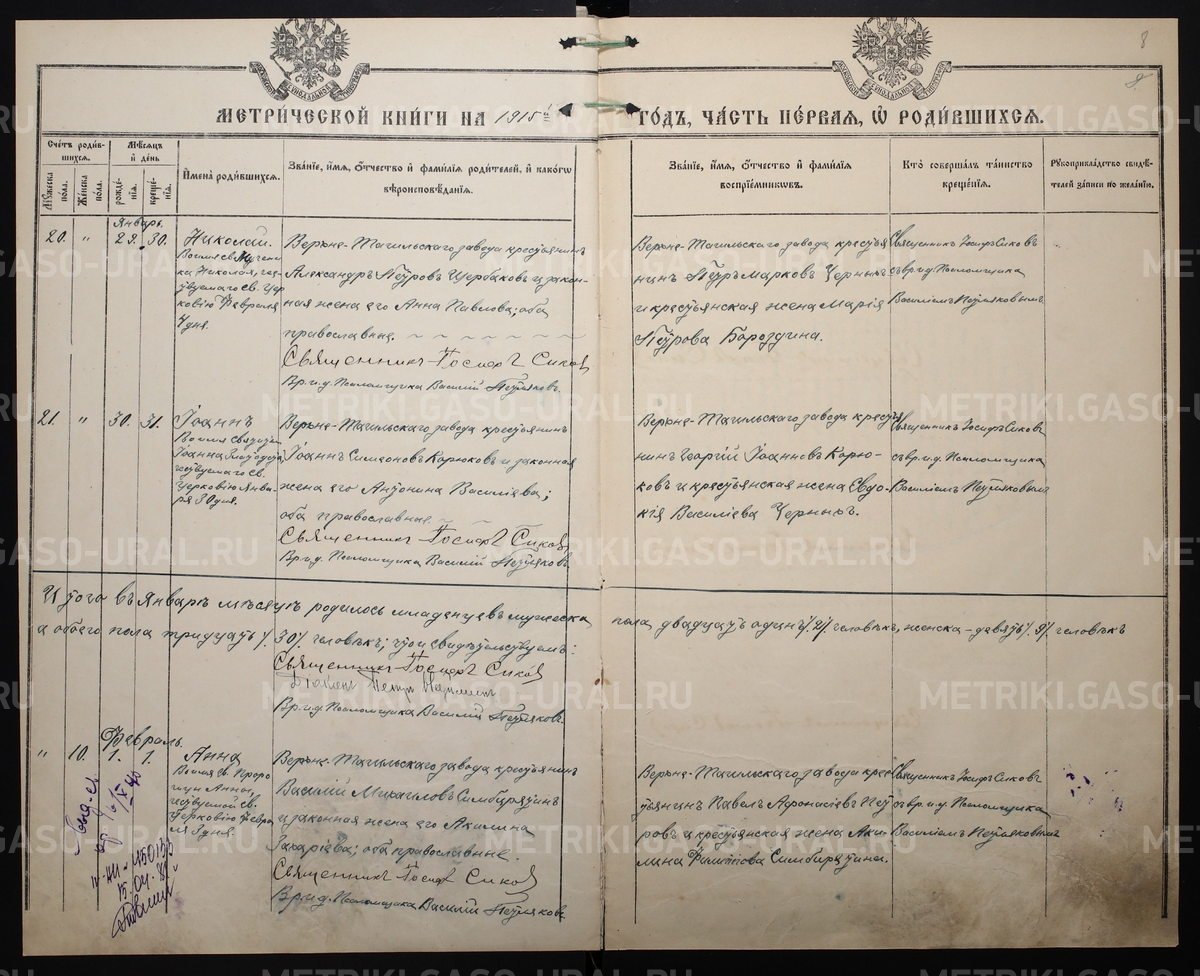 8
МЕТРИ́ЧЕСКОЙ КНИ́ГИ НА 1915й ГО́ДЪ, ЧА́СТЬ ПЕ́РВАЯ, Ѡ РОДИ́ВШИХСЯ.
Сче́тъ роди́в-
шихся.
Му́жеска
по́ла.
Же́нска
по́ла.
Мѣ́сяцъ
и҆ де́нь
рожде́-
нїѧ.
креще́-
нїѧ.
И҆мена̀ роди́вшихся.
Зва́нїе, и҆́мѧ, ѻ҆́тчество и҆ фами́лїѧ роди́телей, и҆ како́гѡ
вѣроисповѣ́данїѧ.
Зва́нїе, и҆́мѧ, ѻ҆́тчество и҆ фами́лїѧ
воспрїе́мниковъ.
Кто̀ соверша́лъ та́инство
креще́нїѧ.
Рꙋкоприкла́дство свидѣ́-
телей за́писи по жела́нїю.
Январь.
20. " 29. 30.
Николай.
Во имя св. Мучени-
ка Николая, че-
твуемаго св. Цер-
ковію Февраля
4 дня.
Верхне-Тагильскаго завода крестьянинъ
Александръ Петровъ Щербаковъ и закон-
ная жена его Анна Павлова; оба
православные.
Священникъ Іосифъ Сиковъ
Вр. и. д. Псаломщика Василій Пестряковъ.
Верхне-Тагильскаго завода крестья-
нинъ Петръ Марковъ Черныхъ
и крестьянская жена Марія
Петрова Бороздина.
Священникъ Іосифъ Сиковъ
съ вр. и. д. Псаломщика
Василіемъ Пестряковымъ
21. " 30. 31.
Іоаннъ
Во имя Святителя
Іоанна Златоуста,
чествуемаго св.
Церковію Янва-
ря 30 дня.
Верхне-Тагильскаго завода крестьянинъ
Іоаннъ Симеоновъ Карюковъ и законная
жена его Антонина Василіева;
оба православные.
Священникъ Іосифъ Сиковъ
Вр. и. д. Псаломщика Василій Пестряковъ.
Верхне-Тагильскаго завода крестья-
нинъ Георгій Іоанновъ Карю-
ковъ и крестьянская жена Евдо-
кія Василіева Черныхъ.
Священникъ Іосифъ Сиковъ
съ вр. и. д. Псаломщика
Василіемъ Пестряковымъ
Итого въ Январѣ мѣсяцѣ родилось младенцевъ мужеска пола двадцать одинъ /21/ человѣкъ, женска - девять /9/ человѣкъ
а обоего пола тридцать /30/ человѣкъ; что и свидѣтельствуемъ:
Священникъ Іосифъ Сиковъ
Діаконъ Петръ
Вр. и. д. Псаломщика Василій Пестряковъ.
Февраль.
" 10. 1. 1.
Анна
Во имя св. Проро-
чицы Анны,
чествуемой св.
Церковію Февра-
ля 3 дня.
Верхне-Тагильскаго завода крестьянинъ
Василій Михаиловъ Симбирятинъ
и законная жена его Акилина
Захаріева; оба православные.
Священникъ Іосифъ Сиковъ
Вр. и. д. Псаломщика Василій Пестряковъ.
Верхне-Тагильскаго завода крес-
тьянинъ Павелъ Афонасіевъ Пет-
ровъ и крестьянская жена Аки-
лина Филиппова Симбирятина.
Священникъ Іосифъ Сиковъ
съ вр. и. д. Псаломщика
Василіемъ Пестряковымъ
METRIKI.GASO-URAL.RU